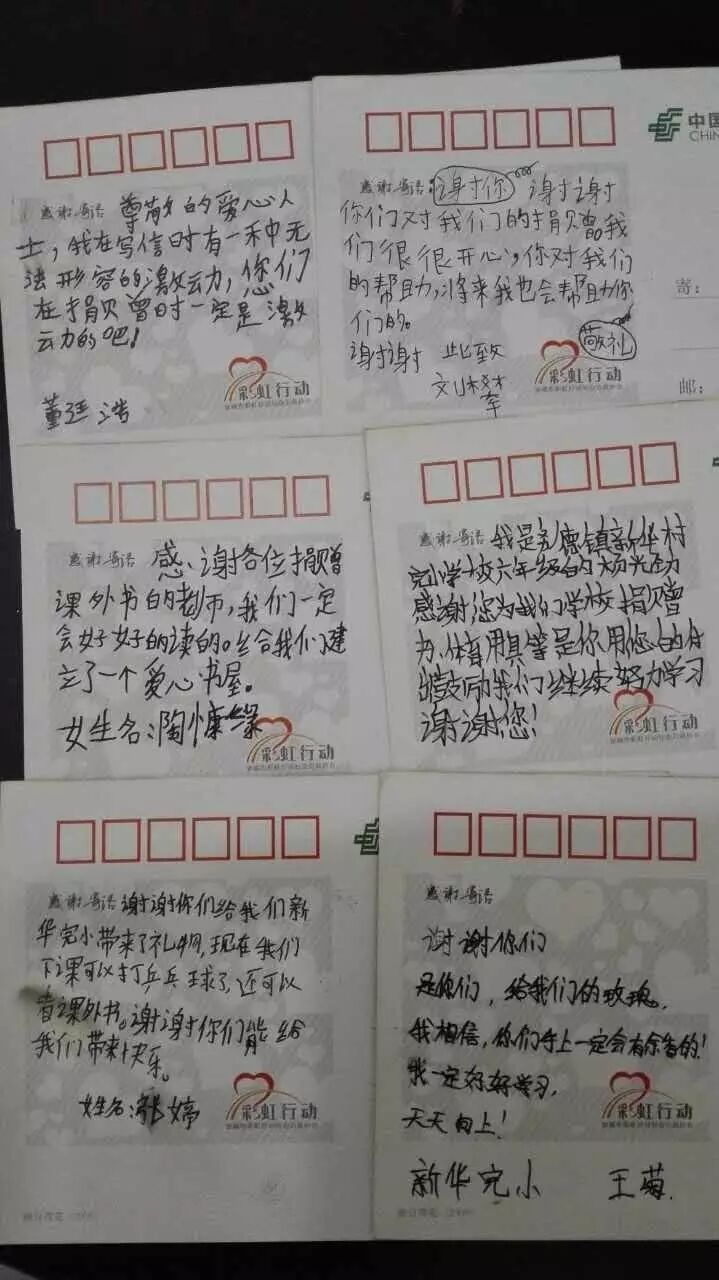 感谢寄语 尊敬的爱心人
士，我在写信时有一种无
法形容的激动，您们
在捐赠时一定是激
动的吧！
董廷浩
彩虹行动
中国
CHIN
感谢寄语 谢谢你 谢谢
你们对我们的捐赠。我
们很很开心，你对我们
的帮助，将来我也会帮助你
们的。
谢谢 此致 敬礼
刘
彩虹行动
寄：
邮：
感谢寄语 感谢各位捐赠
课外书的老师，我们一定
会好好的读的。给我们建
立了一个爱心书屋。
女生名：陶慷
彩虹行动
感谢寄语 我是 德镇新华村
完小学校六年级的杨光劲
感谢您为我们学校捐赠
办、体育用具等是你用您的
鼓励我们继续努力学习
谢谢您！
感谢寄语 谢谢你们给我们新
华完小带来了礼物，现在我们
下课可以打乒乓球了，还可以
看课外书。谢谢你们能给
我们带来快乐。
姓名：张婷
彩虹行动
感谢寄语
谢谢你们
是你们，给我们的玫瑰。
我相信，你们手上一定会有余香的！
我一定好好学习，
天天向上！
彩虹行动
新华完小 王菊.